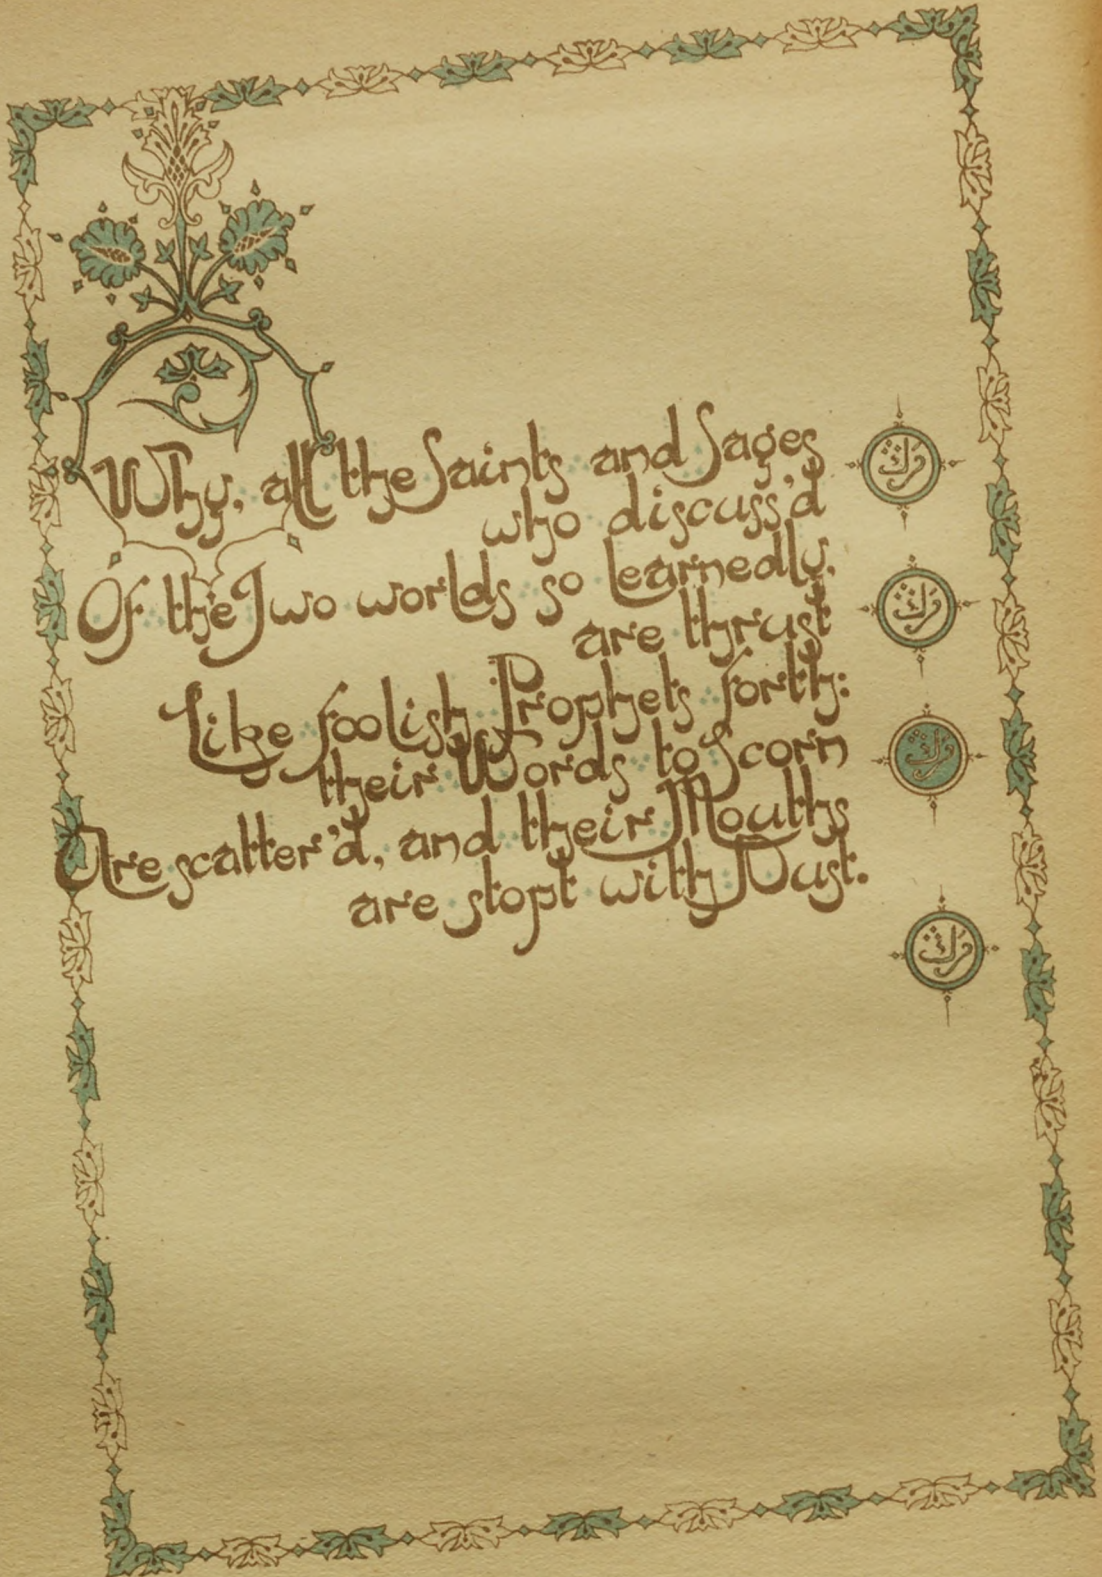 Why, all the Saints and Sages
who discuss'd
Of the Two worlds so learnedly,
are thrust
Like foolish Prophets forth:
their Words to Scorn
Are scatter'd, and their Mouths
are stopt with Dust.